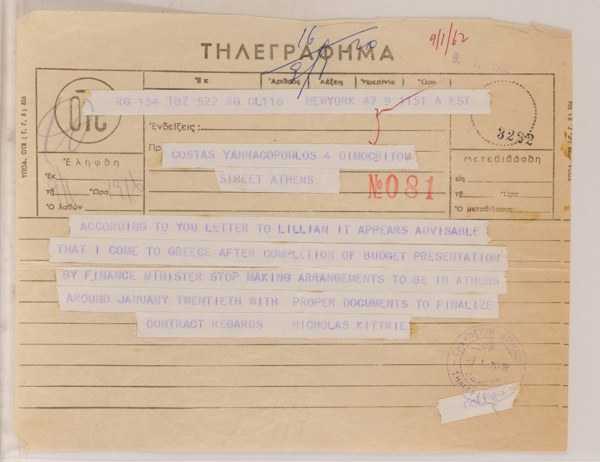 ΤΗΛΕΓΡΑΦΗΜΑ
9/1/62
Ἐκ Ἀριθμός Λέξεις Ἡμερομηνία Ὥρα
RG 154 TBZ 522 RG CL116 NEWYORK 47 9 1151 A EST
ΟΤΕ
Ἐνδείξεις:
3232
COSTAS YANNACOPOULOS 4 DIMOCRITOU
STREET ATHENS
Ἐλήφθη
Μετεδιβάσθη
№081
Ἐκ
Ὥρα
Ὁ λαβών
Ὁ μεταδιβάσας
ACCORDING TO YOU LETTER TO LILLIAN IT APPEARS ADVISABLE
THAT I COME TO GREECE AFTER COMPLETION OF BUDGET PRESENTATION
BY FINANCE MINISTER STOP MAKING ARRANGEMENTS TO BE IN ATHENS
AROUND JANUARY TWENTIETH WITH PROPER DOCUMENTS TO FINALIZE
CONTRACT REGARDS NICHOLAS KITTRIE